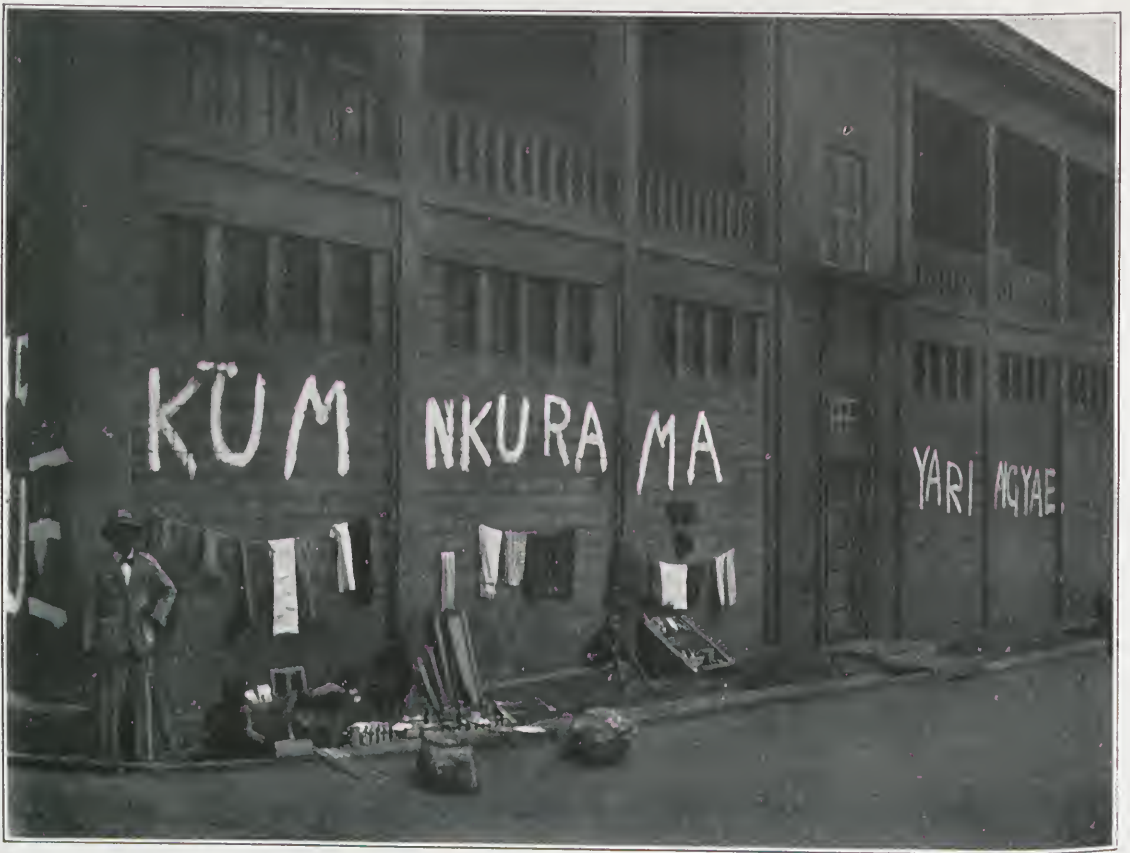 KŪM NKURA MA YARI NGYAE.